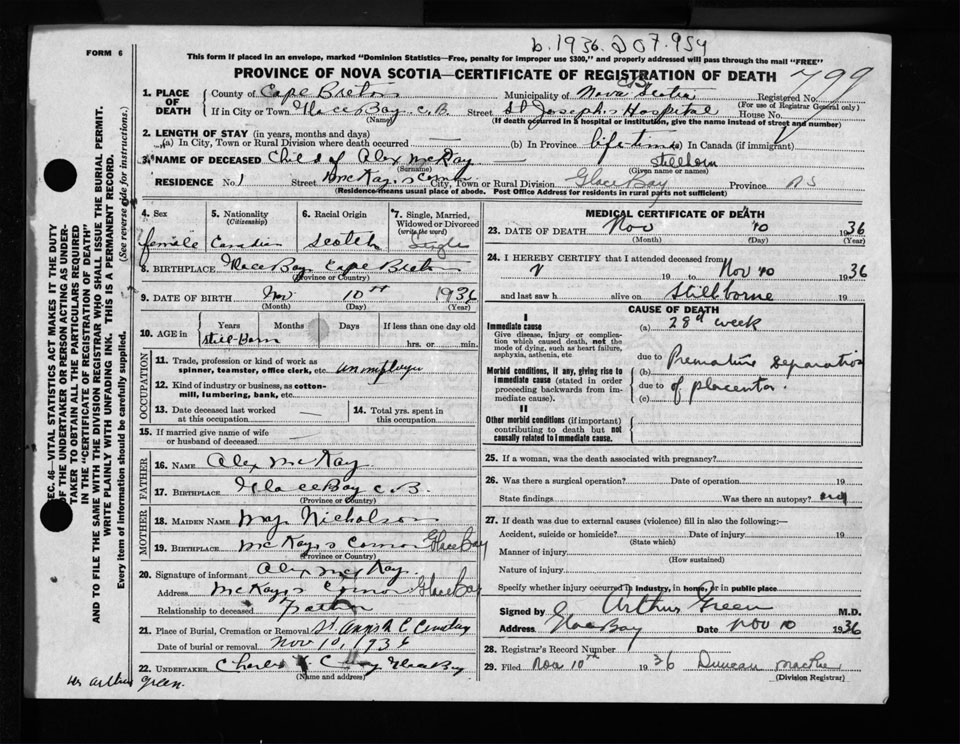 b. 1936. 207.954
FORM 6
This form if placed in an envelope, marked "Dominion Statistics—Free, penalty for improper use $300," and properly addressed will pass through the mail "FREE"
PROVINCE OF NOVA SCOTIA—CERTIFICATE OF REGISTRATION OF DEATH
799
1. PLACE OF DEATH
County of Cape Breton Municipality of Nova Scotia Registered No.
(For use of Registrar General only)
If in City or Town Glace Bay. C.B. Street St Joseph's Hospital House No.
(Name) (If death occurred in a hospital or institution, give the name instead of street and number)
2. LENGTH OF STAY (in years, months and days)
(a) In City, Town or Rural Division where death occurred (b) In Province life-time In Canada (if immigrant)
3. NAME OF DECEASED Child of Alex McKay — stillborn
(Surname) (Given name or names)
RESIDENCE No. 1 Street McKay's Corner City, Town or Rural Division Glace Bay Province NS
(Residence means usual place of abode. Post Office Address for residents in rural parts not sufficient)
4. Sex female
5. Nationality (Citizenship) Canadian
6. Racial Origin Scotch
7. Single, Married, Widowed or Divorced (write the word) Single
8. BIRTHPLACE Glace Bay Cape Breton
(Province or Country)
9. DATE OF BIRTH Nov 10th 1936
(Month) (Day) (Year)
10. AGE in Years Months Days If less than one day old
Still-Born hrs. or min.
OCCUPATION
11. Trade, profession or kind of work as spinner, teamster, office clerk, etc.
12. Kind of industry or business, as cotton-mill, lumbering, bank, etc.
13. Date deceased last worked at this occupation —
14. Total yrs. spent in this occupation
15. If married give name of wife or husband of deceased —
FATHER
16. NAME Alex McKay
17. BIRTHPLACE Glace Bay C.B.
(Province or Country)
MOTHER
18. MAIDEN NAME Nicholson
19. BIRTHPLACE McKay's Corner Glace Bay
(Province or Country)
20. Signature of informant Alex McKay.
Address McKay's Corner Glace Bay
Relationship to deceased Father
21. Place of Burial, Cremation or Removal St Anns R C Cemetery
Date of burial or removal Nov 10, 1936
22. UNDERTAKER Charles Glace Bay
(Name and address)
Dr Arthur Green.
MEDICAL CERTIFICATE OF DEATH
23. DATE OF DEATH Nov 10 1936
(Month) (Day) (Year)
24. I HEREBY CERTIFY that I attended deceased from
19 to Nov 10 1936
and last saw h alive on Stillborne 19
CAUSE OF DEATH
I
Immediate cause
Give disease, injury or complication which caused death, not the mode of dying, such as heart failure, asphyxia, asthenia, etc
(a) 28th week
due to
Morbid conditions, if any, giving rise to immediate cause (stated in order proceeding backwards from immediate cause).
(b) Premature separation
due to of placenta.
(c)
II
Other morbid conditions (if important) contributing to death but not causally related to immediate cause.
25. If a woman, was the death associated with pregnancy?
26. Was there a surgical operation? Date of operation 19
State findings Was there an autopsy? no
27. If death was due to external causes (violence) fill in also the following:—
Accident, suicide or homicide? Date of injury 19
(State which)
Manner of injury
(How sustained)
Nature of injury
Specify whether injury occurred in industry, in home, or in public place
Signed by Arthur Green M.D.
Address Glace Bay Date Nov 10 1936
28. Registrar's Record Number
29. Filed Nov 10th 1936 Duncan
(Division Registrar)
SEC. 46—VITAL STATISTICS ACT MAKES IT THE DUTY
OF THE UNDERTAKER OR PERSON ACTING AS UNDER-
TAKER TO OBTAIN ALL THE PARTICULARS REQUIRED
IN THE "CERTIFICATE OF REGISTRATION OF DEATH"
AND TO FILE THE SAME WITH THE DIVISION REGISTRAR WHO SHALL ISSUE THE BURIAL PERMIT.
WRITE PLAINLY WITH UNFADING INK. THIS IS A PERMANENT RECORD.
Every item of information should be carefully supplied. (See reverse side for instructions.)